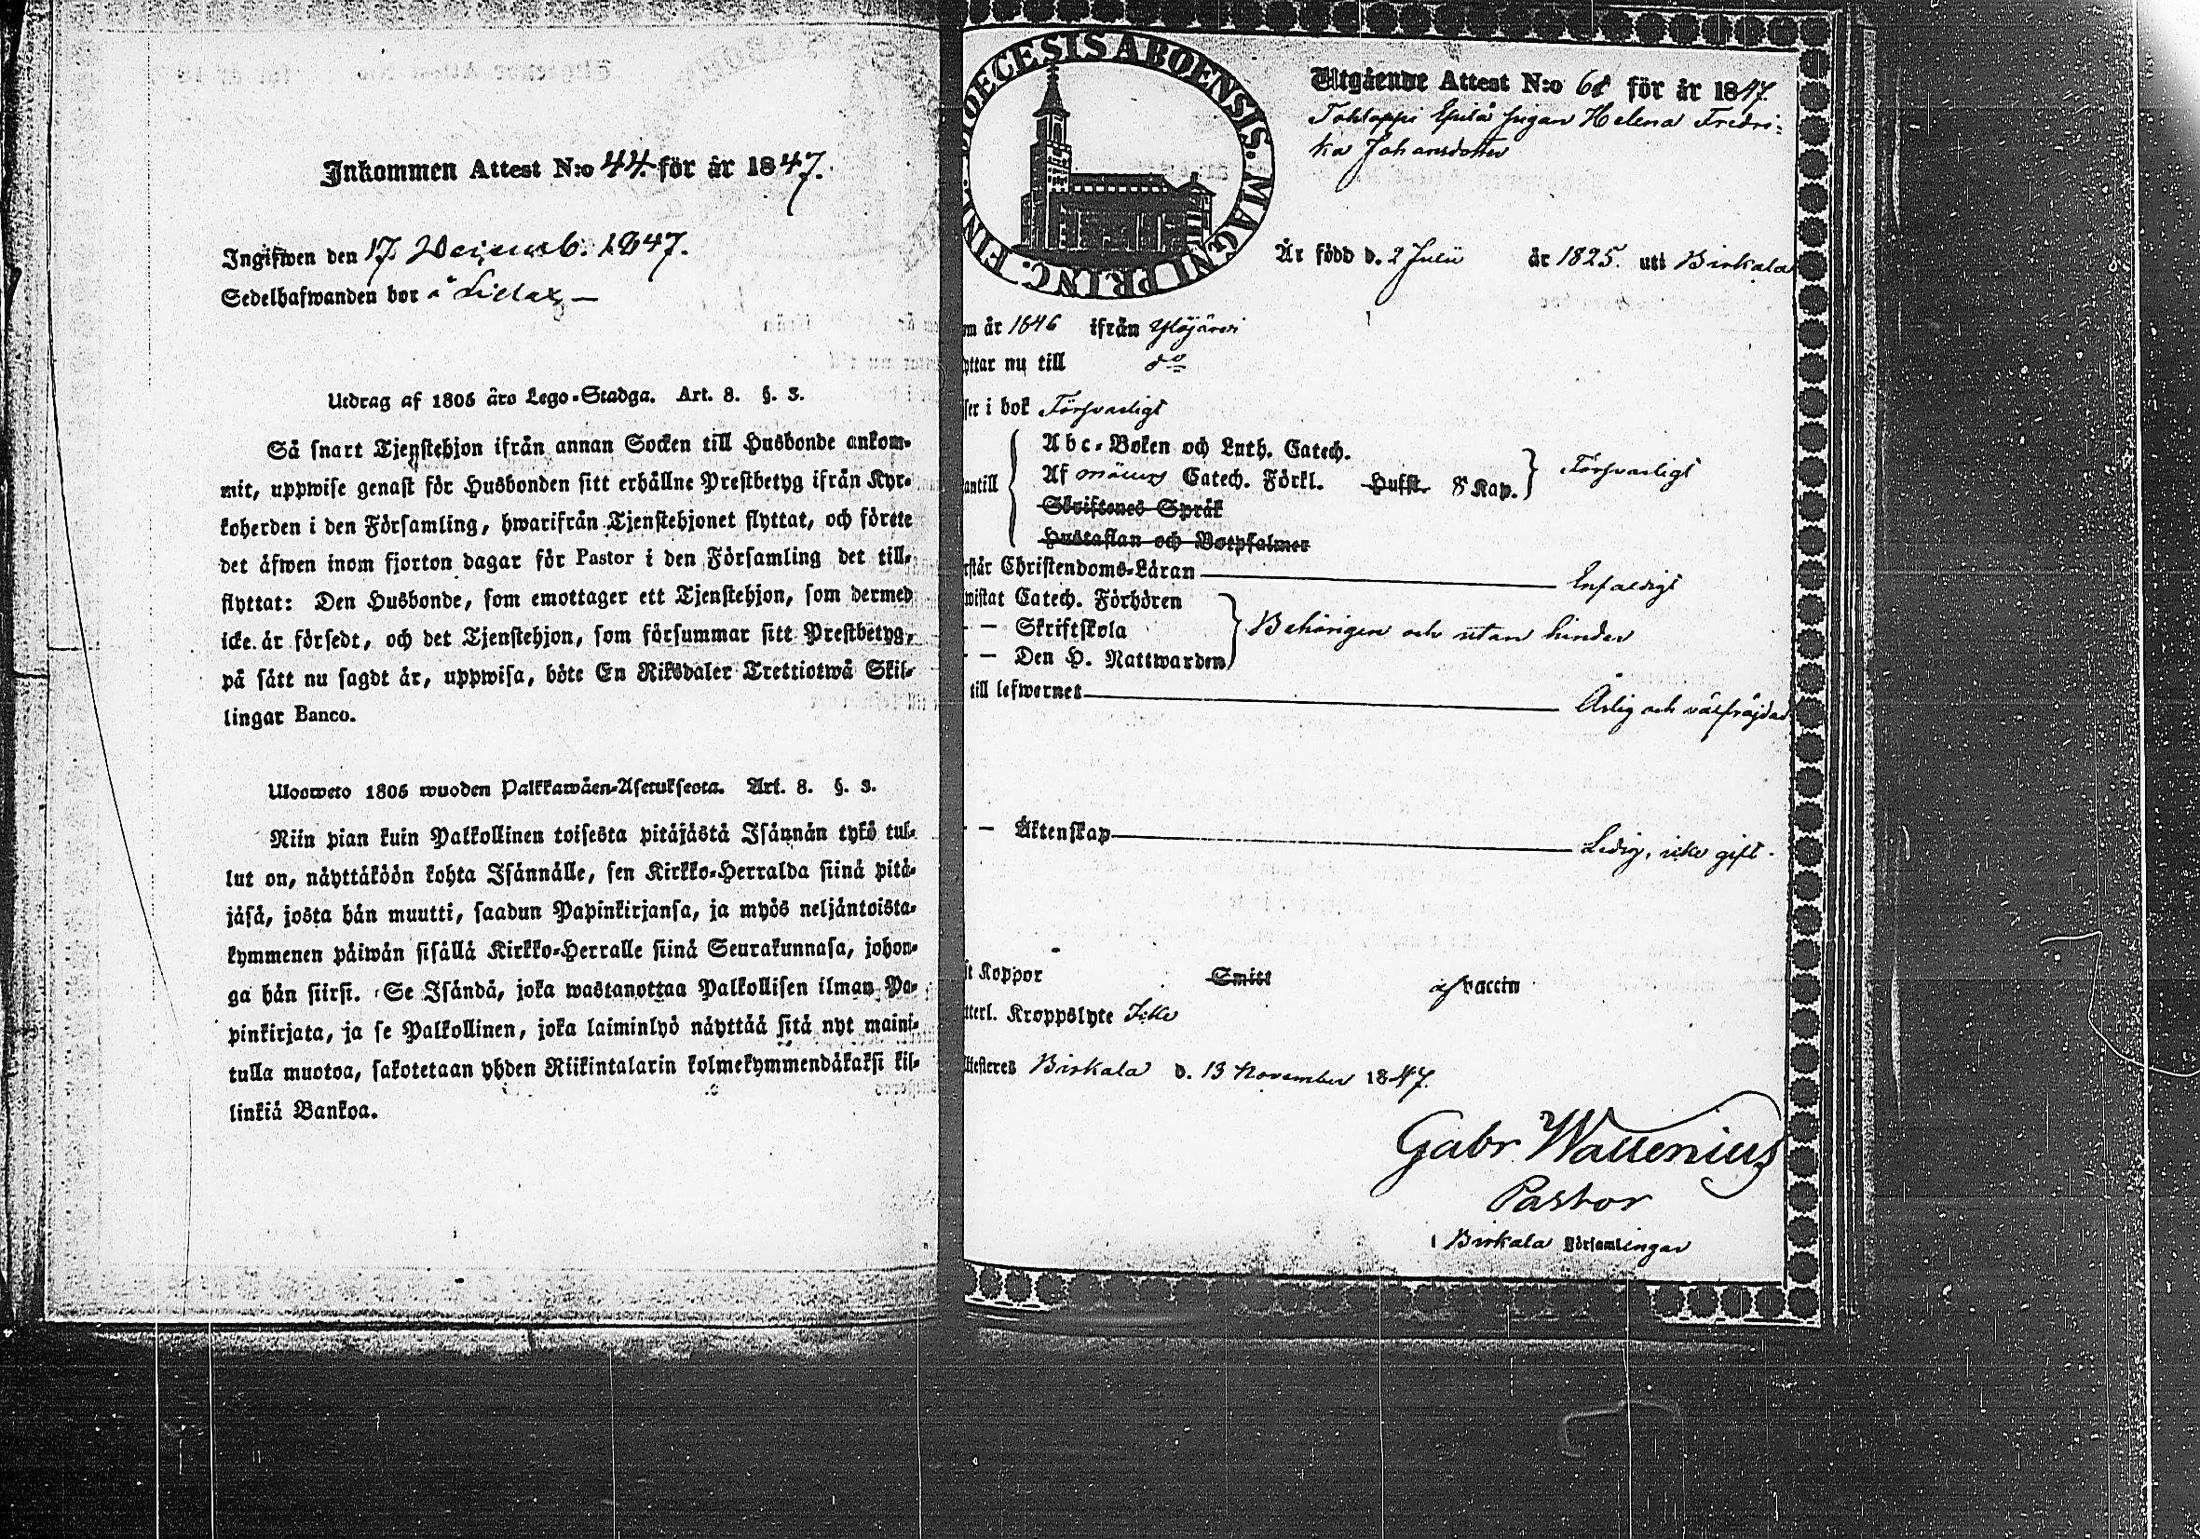 Inkommen Attest N:o 44. för år 1847.
Ingifwen den 17 Decemb. 1847.
Sedelhafwanden bor å
Utdrag af 1805 års Lego-Stadga. Art. 8. §. 3.
Så snart Tjenstehjon ifrån annan Socken till Husbonde ankom-
mit, uppwise genast för Husbonden sitt erhållne Prestbetyg ifrån Kyr-
koherden i den Församling, hwarifrån Tjenstehjonet flyttat, och förete
det äfwen inom fjorton dagar för Pastor i den Församling det till-
flyttat: Den Husbonde, som emottager ett Tjenstehjon, som dermed
icke är försedt, och det Tjenstehjon, som försummar sitt Prestbetyg,
på sätt nu sagdt är, uppwisa, böte En Riksdaler Trettiotwå Skil-
lingar Banco.
Ulosweto 1805 wuoden Palkkawäen-Asetuksesta. Art. 8. §. 3.
Niin pian kuin Palkollinen toisesta pitäjästä Isännän tykö tul-
lut on, näyttäköön kohta Isännälle, sen Kirkko-Herralda siinä pitä-
jäsä, josta hän muutti, saadun Papinkirjansa, ja myös neljäntoista-
kymmenen päiwän sisällä Kirkko-Herralle siinä Seurakunnasa, johon-
ga hän siirsi. Se Isändä, joka wastanottaa Palkollisen ilman Pa-
pinkirjata, ja se Palkollinen, joka laiminlyö näyttää sitä nyt maini-
tulla muotoa, sakotetaan yhden Riikintalarin kolmekymmendäkaksi kil-
linkiä Bankoa.
DIOECESIS ABOENSIS. MAGNI PRINC. FINL.
Utgående Attest N:o för år 1847.
pigan Helena Fredri-
ka Johansdotter
Är född d. 2 Julii år 1825. uti Birkala
m år 1846 ifrån Ylöjärvi
yttar nu till do
ser i bok Försvarligt
Abc-Boken och Luth. Catech.
antill Af Catech. Förkl. Hufst. 8 Kap. Försvarligt
Skriftenes Språk
Hustaflan och Botpsalmer
rstår Christendoms-Läran Enfaldigt
wistat Catech. Förhören
- - Skriftskola Behörigen och utan hinder
- - Den H. Nattwarden
till lefwernet Ärlig och välfräjdad
- - Äktenskap Ledig, icke gift.
ft Koppor Smitt af vaccin
tterl. Kroppslyte Icke
Attesteres Birkala d. 13 November 1847.
Gabr. Wallenius
Pastor
i Birkala Församlingar